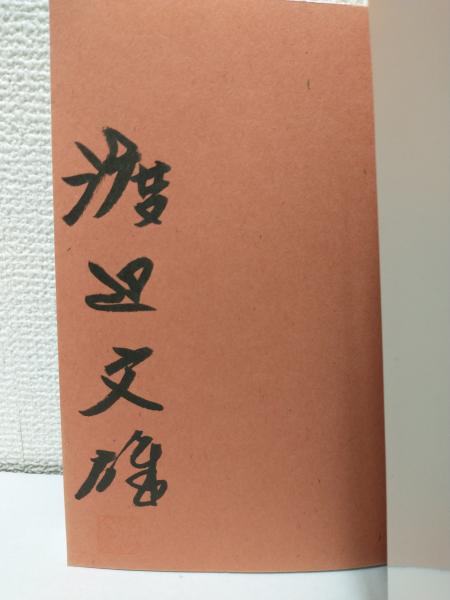 渡辺文雄